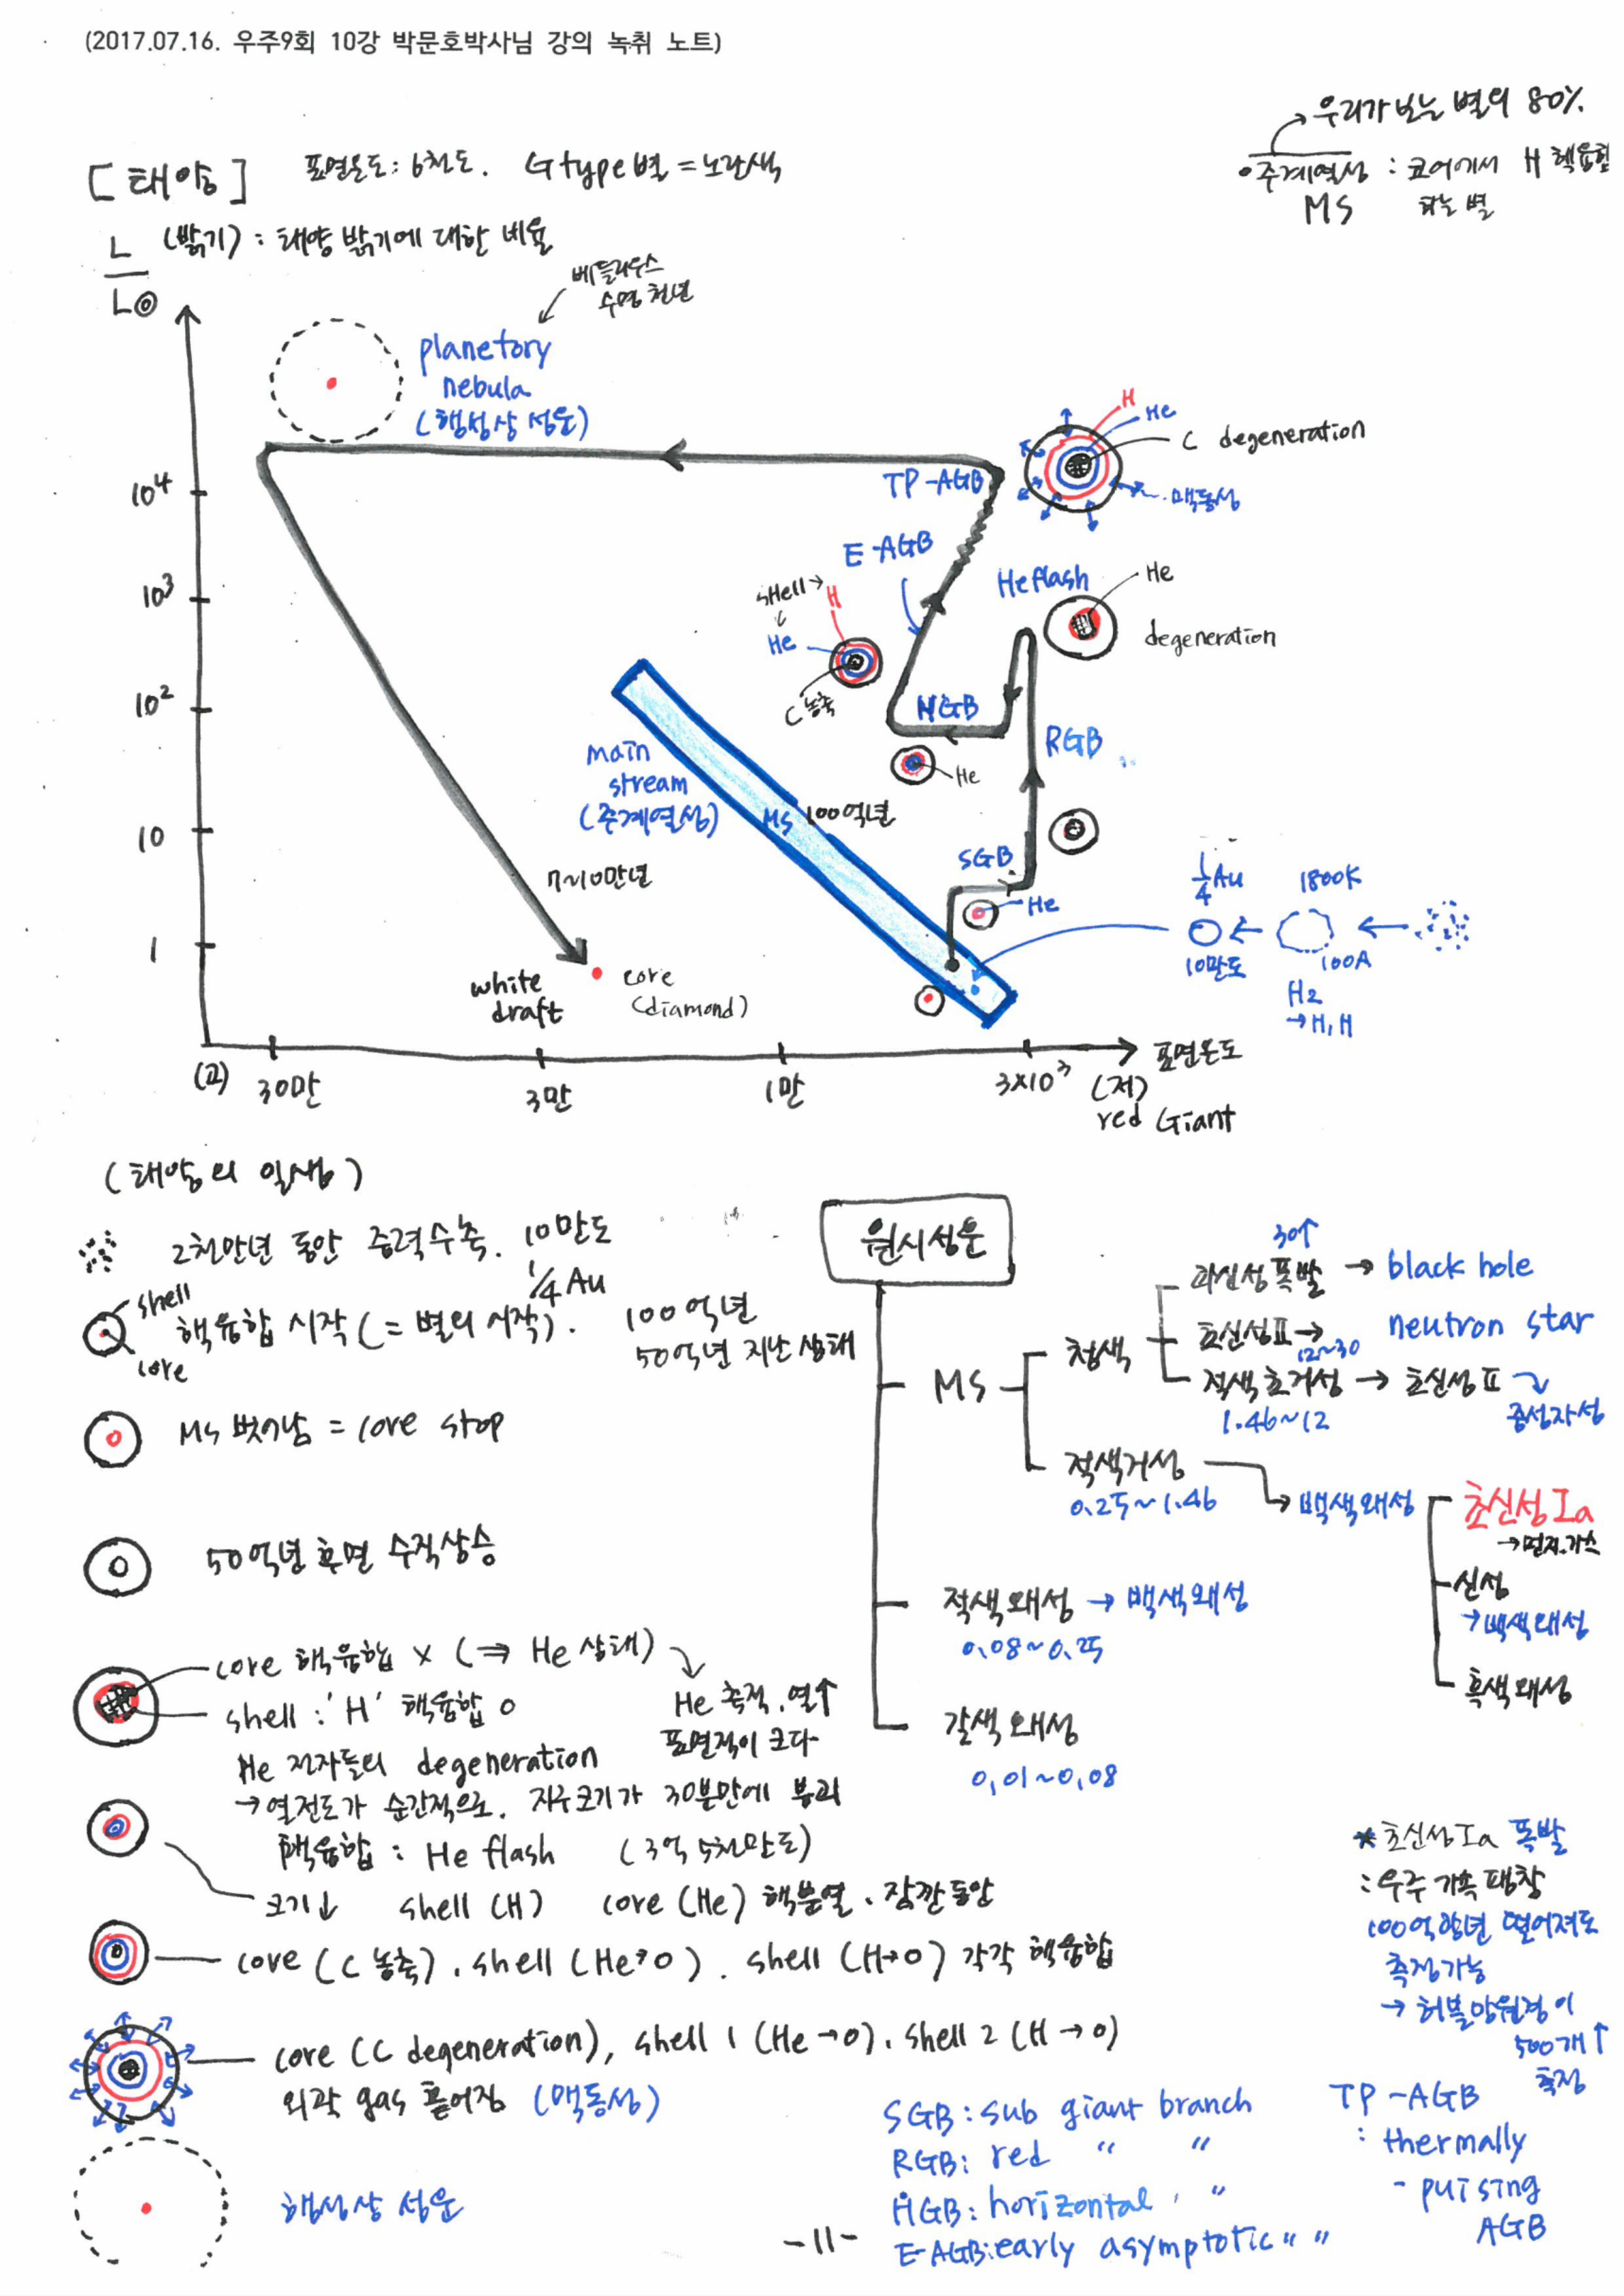 (2017.07.16. 우주9회 10강 박문호박사님 강의 녹취 노트)
→ 우리가 보는 별의 80%
[태양] 표면온도: 6천도. G type 별 = 노란색
• 주계열성 : 코어에서 H 핵융합
MS 하는 별
L (밝기) : 태양 밝기에 대한 비율
L◎
베들레우스
수명 천년
planetory
nebula
(행성상 성운)
H
He
C degeneration
맥동성
TP-AGB
10⁴
E-AGB
He flash
He
degeneration
10³
shell →
H
He
C 농축
10²
HGB
He
RGB
main
stream
(주계열성)
MS 100억년
10
SGB
He
7~10만년
¼ Au
1800K
10만도
100A
H2
→ H, H
1
white
draft
core
(diamond)
(고) 30만 3만 1만 3×10³ (저)
표면온도
red Giant
(태양의 일생)
2천만년 동안 중력수축. 10만도
¼ Au
shell
core
핵융합 시작 (= 별의 시작). 100억년
50억년 지난 상태
MS 벗어남 = core stop
50억년 후면 수직상승
core 핵융합 × (⇒ He 상태)
shell : 'H' 핵융합 O
He 축적. 열↑
표면적이 크다
He 전자들의 degeneration
→ 열전도가 순간적으로. 지구크기가 30분만에 붕괴
핵융합 : He flash (3억 5천만도)
크기↓ shell (H) core (He) 핵분열. 잠깐동안
core (C 농축). shell (He→O). shell (H→O) 각각 핵융합
core (C degeneration), shell 1 (He → O). shell 2 (H → O)
외곽 gas 흩어짐 (맥동성)
행성상 성운
원시성운
MS
청색
30↑
극신성 폭발 → black hole
초신성Ⅱ → neutron star
12~30
적색 초거성 → 초신성 Ⅱ
1.46~12
중성자성
적색거성
0.25~1.46
→ 백색왜성
초신성 Ia
→ 먼지.가스
신성
→ 백색왜성
흑색왜성
적색왜성 → 백색왜성
0.08~0.25
갈색왜성
0.01~0.08
* 초신성Ia 폭발
: 우주 가속 팽창
100억광년 떨어져도
측정가능
→ 허블망원경이
500개↑
측정
SGB : sub giant branch
RGB : red " "
HGB : horizontal " "
E-AGB : early asymptotic " "
TP-AGB
: thermally
- pulsing
AGB
-11-